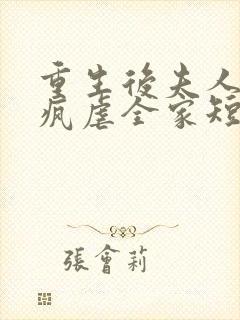 重生後夫人
瘋虐全家短
張會莉